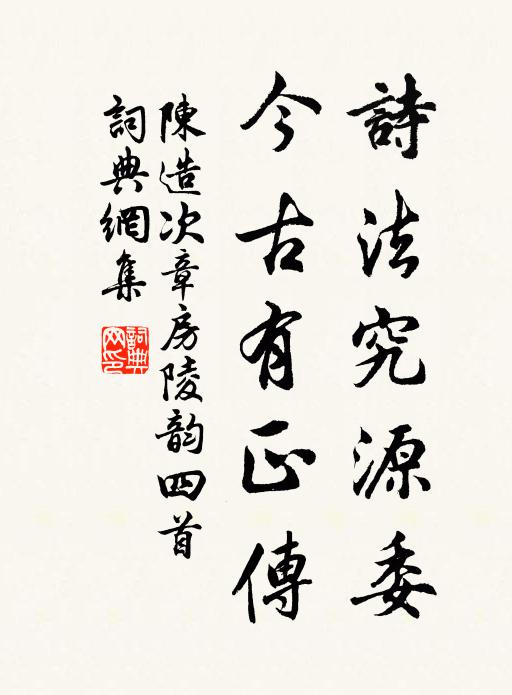 詩法究源委
今古有正傳
陳造次章房陵韵四首
詞典網集
詞典網印